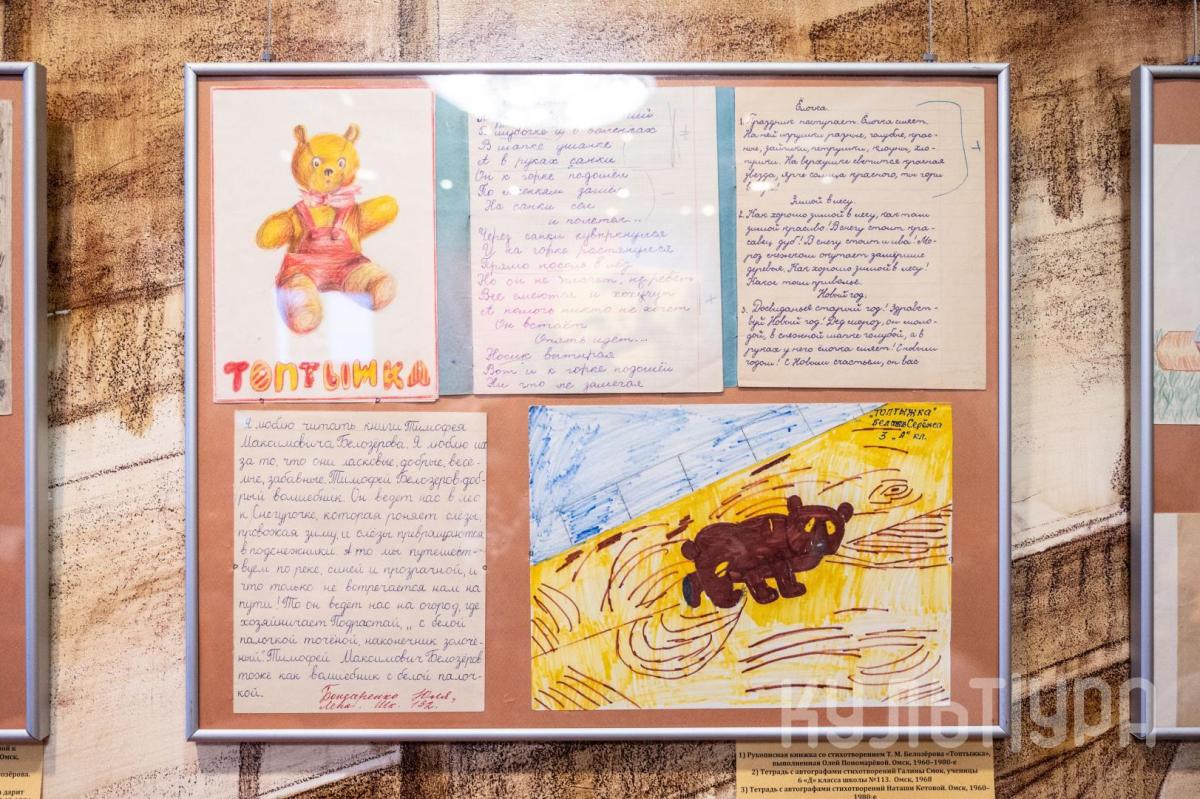 ТОПТЫЖКА
В шубочке и в валенках
В шапке ушанке
А в руках санки
Он к горке подошёл
По ступенькам зашёл
На санки сел
и полетел...
Через санки кувыркнулся
И на горке растянулся
Прямо носом в лёд
Но он не плачет, не ревёт
Все смеются и хохочут
А помочь никто не хочет
Он встаёт
Опять идет...
Носик вытирая
Вот и к горке подошёл
Ни что не замечая
Ёлочка.
1. Праздник наступает. Ёлочка сияет.
На ней игрушки разные, голубые, крас-
ные, зайчики, петрушки, клоуны, хло-
пушки. На верхушке светится красная
звезда, ярче солнца красного, ты гори
Зимой в лесу.
2. Как хорошо зимой в лесу, как там
зимой красиво! В снегу стоит кра-
савец дуб! В снегу стоит и ива! Мо-
роз снежком окутает замёрзшие
деревья. Как хорошо зимой в лесу!
Какое там приволье.
Новый год.
3. Досвиданье старый год! Здравст-
вуй Новый год! Дед мороз, он моло-
дой, в снежной шапке голубой, а в
руках у него ёлочка сияет! С новым
годом! С Новым счастьем, он вас
Я люблю читать книги Тимофея
Максимовича Белозёрова. Я люблю их
за то, что они ласковые, добрые, весё-
лые, забавные. Тимофей Белозёров-доб-
рый волшебник. Он ведет нас в лес
к Снегурочке, которая роняет слёзы,
провожая зиму, и слёзы превращаются
в подснежники. А то мы путешест-
вуем по реке, синей и прозрачной, и
что только не встречается нам на
пути! То он ведет нас на огород, где
хозяйничает Подрастай, „ с белой
палочкой точёной, наконечник золоче-
ный". Тимофей Максимович Белозёров
тоже как волшебник с белой палоч-
кой.
Бондаренко Юля,
шк. 132.
"ТОПТЫЖКА"
Серёжа
3 „А" кл.
КУЛЬТУРА
1) Рукописная книжка со стихотворением Т. М. Белозёрова «Топтыжка»,
выполненная Олей Пономарёвой. Омск, 1960–1980-е
2) Тетрадь с автографами стихотворений Галины Смок, ученицы
6 «Д» класса школы №113. Омск, 1968
3) Тетрадь с автографами стихотворений Наташи Кетовой. Омск, 1960–
1980-е
Омск,
дарит